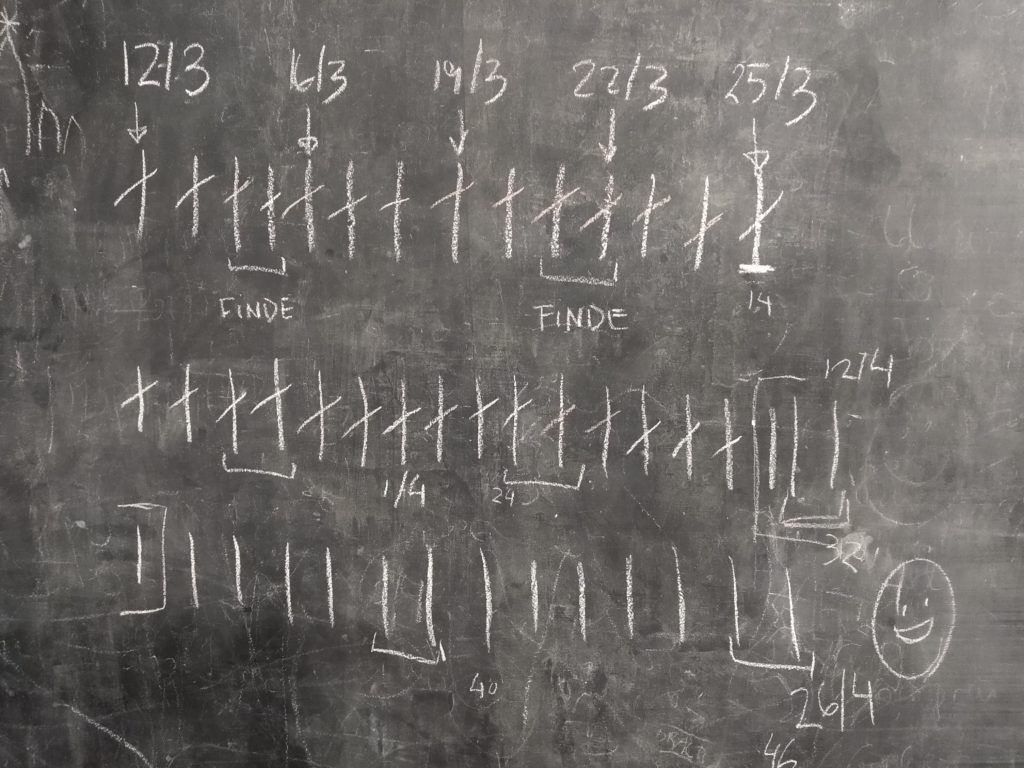 12/3 16/3 19/3 22/3 25/3
FINDE FINDE 14
12/4
1/4 24
32
40
26/4
46